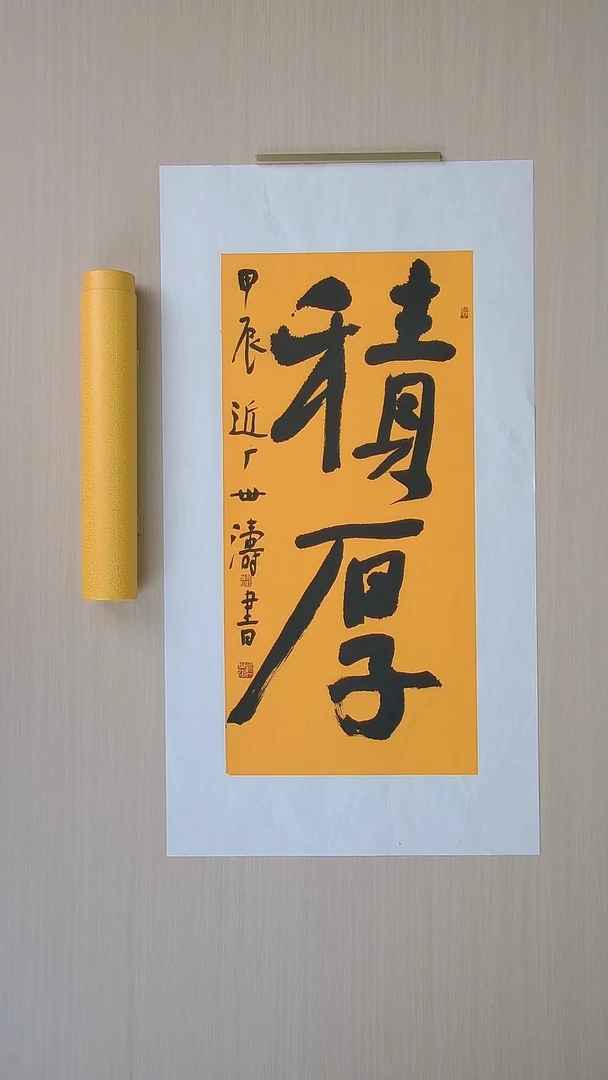 積厚
甲辰 近厂世濤書